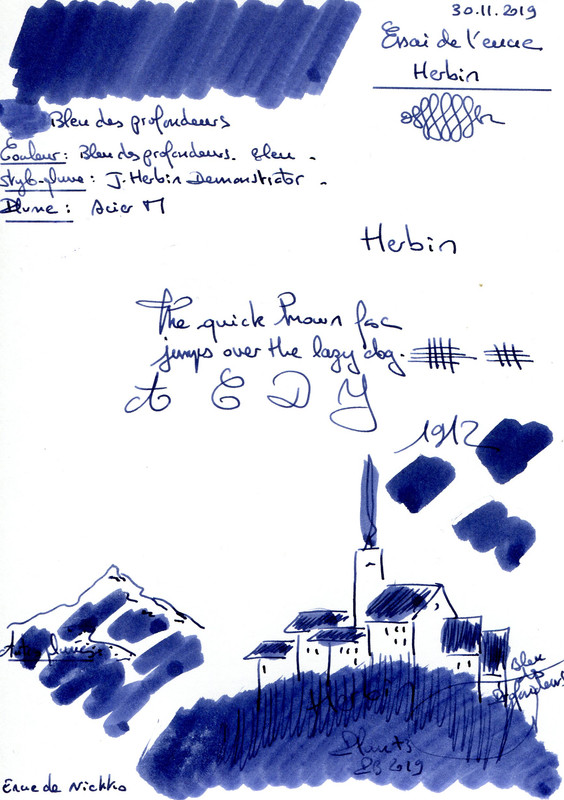 30.11.2019
Essai de l'encre
Herbin
Bleu des profondeurs
Couleur : Bleu des profondeurs. Bleu.
stylo-plume : J. Herbin Demonstrator.
Plume : Acier M
Herbin
The quick brown fox
jumps over the lazy dog.
A E D Y
1912
Bleu
des
Profondeurs
Herbin
2019
Encre de Nickko